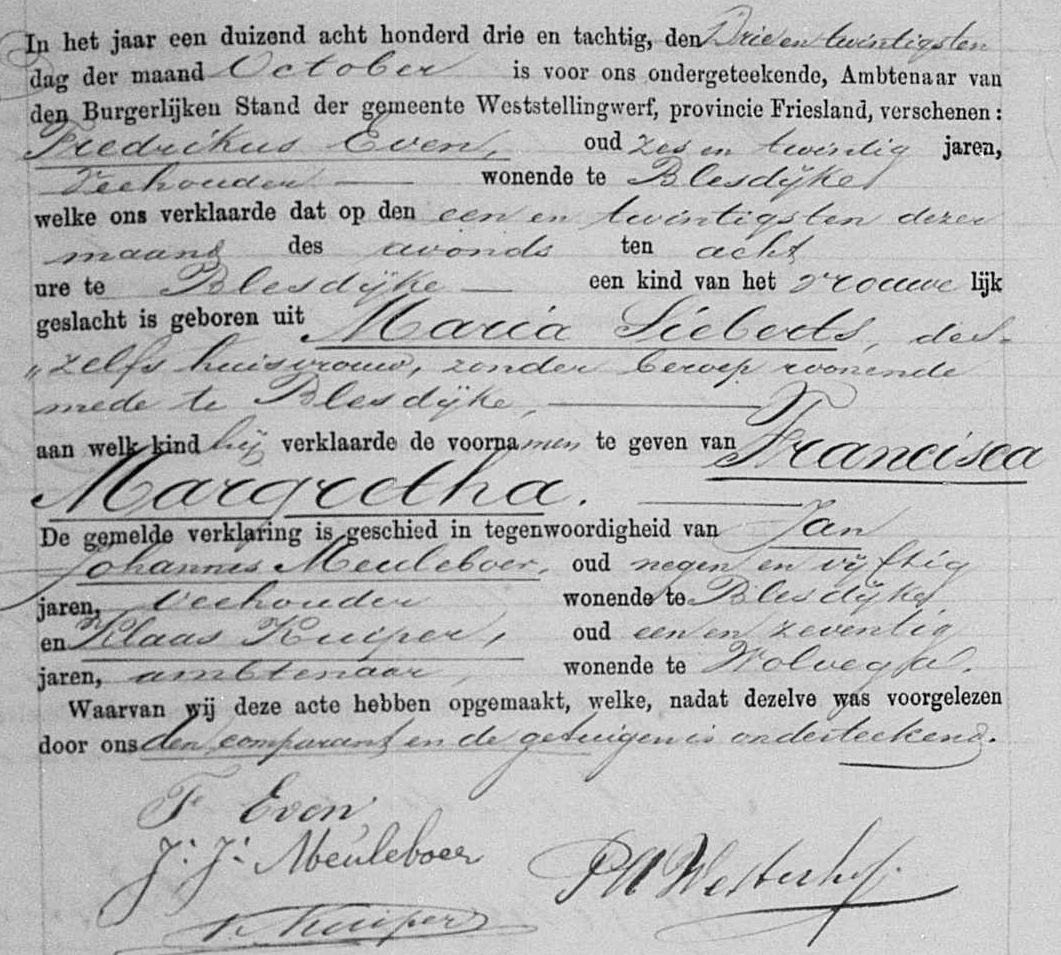 In het jaar een duizend acht honderd drie en tachtig, den Drie en twintigsten
dag der maand October is voor ons ondergeteekende, Ambtenaar van
den Burgerlijken Stand der gemeente Weststellingwerf, provincie Friesland, verschenen:
Fredrikus Even, oud zes en twintig jaren,
Veehouder wonende te Blesdijke,
welke ons verklaarde dat op den een en twintigsten dezer
maand des avonds ten acht
ure te Blesdijke een kind van het vrouwe lijk
geslacht is geboren uit Maria Sieberts, des-
„zelfs huisvrouw, zonder beroep woonende
mede te Blesdijke,
aan welk kind hij verklaarde de voorna men te geven van Francisca
Margretha.
De gemelde verklaring is geschied in tegenwoordigheid van Jan
Johannes Meuleboer, oud negen en vijftig
jaren, Veehouder wonende te Blesdijke,
en Klaas Kuiper, oud een en zeventig
jaren, ambtenaar, wonende te Wolvega.
Waarvan wij deze acte hebben opgemaakt, welke, nadat dezelve was voorgelezen
door ons den comparant en de getuigen is onderteekend.
F Even
J. J. Meuleboer
PW Westerhof.
K Kuiper